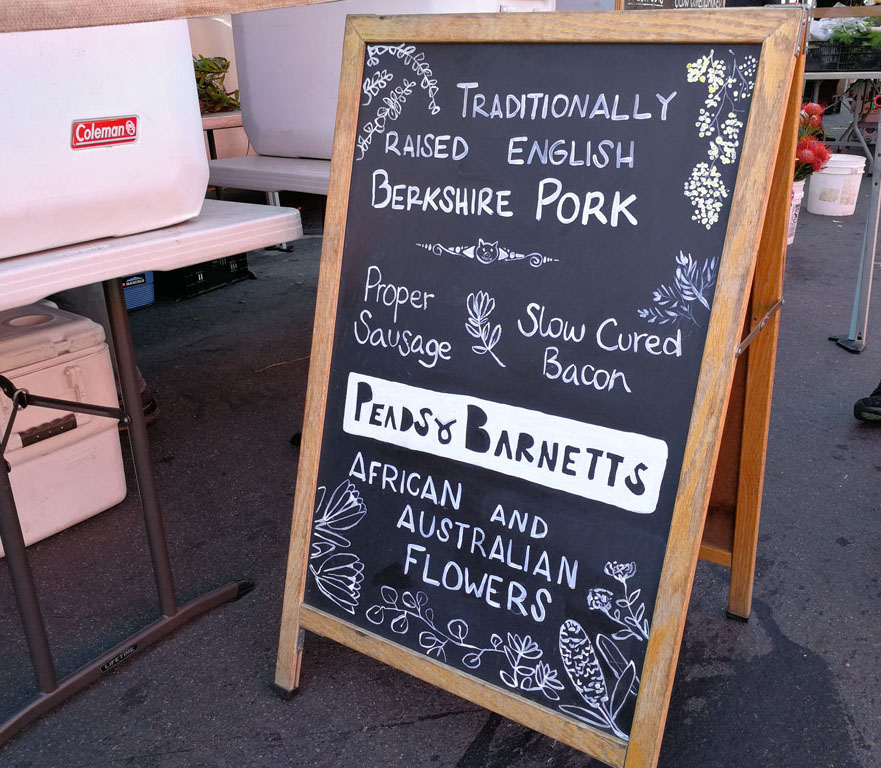 Coleman
TRADITIONALLY
RAISED ENGLISH
BERKSHIRE PORK
Proper
Sausage
Slow Cured
Bacon
PEADS & BARNETTS
AFRICAN AND
AUSTRALIAN
FLOWERS
LIFETIME